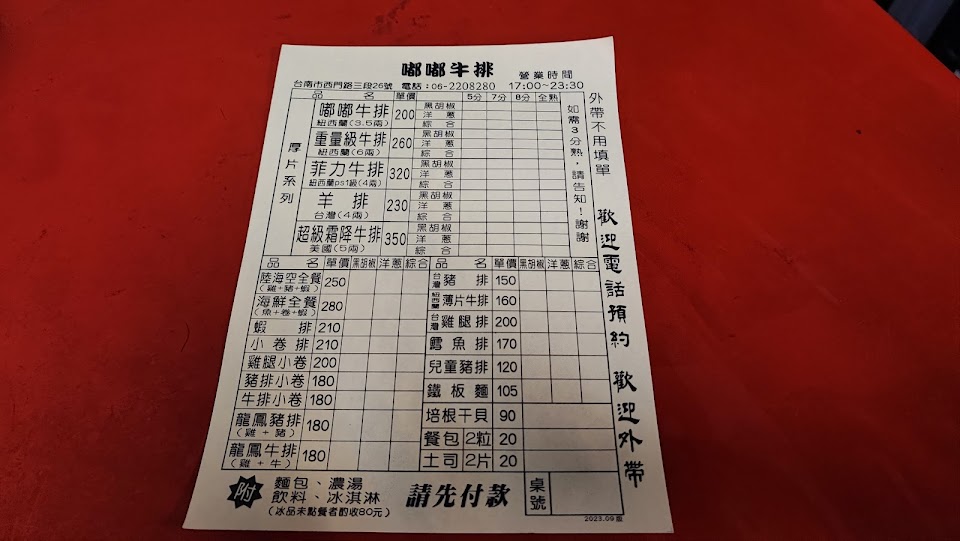 嘟嘟牛排 營業時間
台南市西門路三段26號 電話:06-2208280 17:00~23:30
品名 單價 5分 7分 8分 全熟
厚片系列
嘟嘟牛排 200 黑胡椒
紐西蘭(3.5兩) 洋蔥
綜合
重量級牛排 260 黑胡椒
紐西蘭(6兩) 洋蔥
綜合
菲力牛排 320 黑胡椒
紐西蘭ps1級(4兩) 洋蔥
綜合
羊排 230 黑胡椒
台灣(4兩) 洋蔥
綜合
超級霜降牛排 350 黑胡椒
美國(5兩) 洋蔥
綜合
如需3分熟,請告知!謝謝
外帶不用填單
歡迎電話預約 歡迎外帶
品名 單價 黑胡椒 洋蔥 綜合
陸海空全餐 250
(雞+豬+蝦)
海鮮全餐 280
(魚+卷+蝦)
蝦排 210
小卷排 210
雞腿小卷 200
豬排小卷 180
牛排小卷 180
龍鳳豬排 180
(雞+豬)
龍鳳牛排 180
(雞+牛)
品名 單價 黑胡椒 洋蔥 綜合
台灣豬排 150
紐西蘭薄片牛排 160
台灣雞腿排 200
鱈魚排 170
兒童豬排 120
鐵板麵 105
培根干貝 90
餐包2粒 20
土司2片 20
附 麵包、濃湯
飲料、冰淇淋
(冰品未點餐者酌收80元)
請先付款
桌號
2023.09版